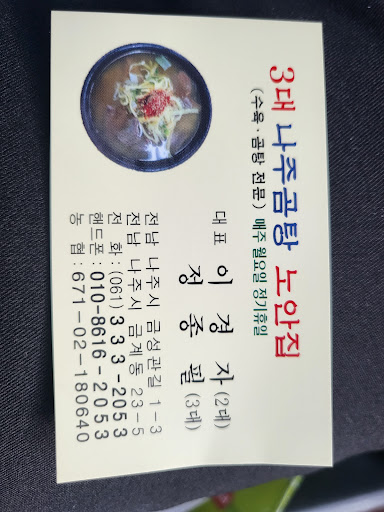 3대 나주곰탕 노안집
(수육·곰탕 전문) 매주 월요일 정기휴일
대표 이 경 자 (2대)
정 종 필 (3대)
전남 나주시 금성관길 1-3
전남 나주시 금계동 23-5
전 화 : (061) 333-2053
핸드폰 : 010-8616-2053
농 협 : 671-02-180640